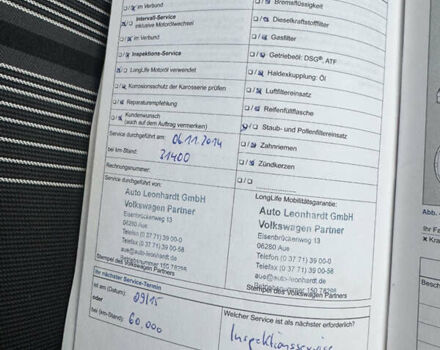 im Verbund
Intervall-Service
inklusive Motorölwechsel
im Verbund
Inspektions-Service
LongLife Motoröl verwendet
Korrosionsschutz der Karosserie prüfen
Reparaturempfehlung
Kundenwunsch
(auch auf dem Auftrag vermerken)
Service durchgeführt am: 06.11.2014
bei km-Stand: 31400
Rechnungsnummer:
Service durchgeführt von:
Auto Leonhardt GmbH
Volkswagen Partner
Eisenbrückenweg 13
06280 Aue
Telefon (0 37 71) 39 00-0
Telefax (0 37 71) 39 00-56
aue@auto-leonhardt.de
Stempel des Volkswagen Partners
Bremsflüssigkeit
Dieselkraftstofffilter
Gasfilter
Getriebeöl: DSG®, ATF
Haldexkupplung: Öl
Luftfiltereinsatz
Reifenfüllflasche
Staub- und Pollenfiltereinsatz
Zahnriemen
Zündkerzen
LongLife Mobilitätsgarantie:
Auto Leonhardt GmbH
Volkswagen Partner
Eisenbrückenweg 13
06280 Aue
Telefon (0 37 71) 39 00-0
Telefax (0 37 71) 39 00-56
aue@auto-leonhardt.de
Stempel des Volkswagen Partners
Ihr nächster Service-Termin
ist am (Datum): 09/15
oder
bei (km-Stand): 60.000
Welcher Service ist als nächster erforderlich?
Inspektionsservice
Abb.
Ihr Fa
Kra
Besch